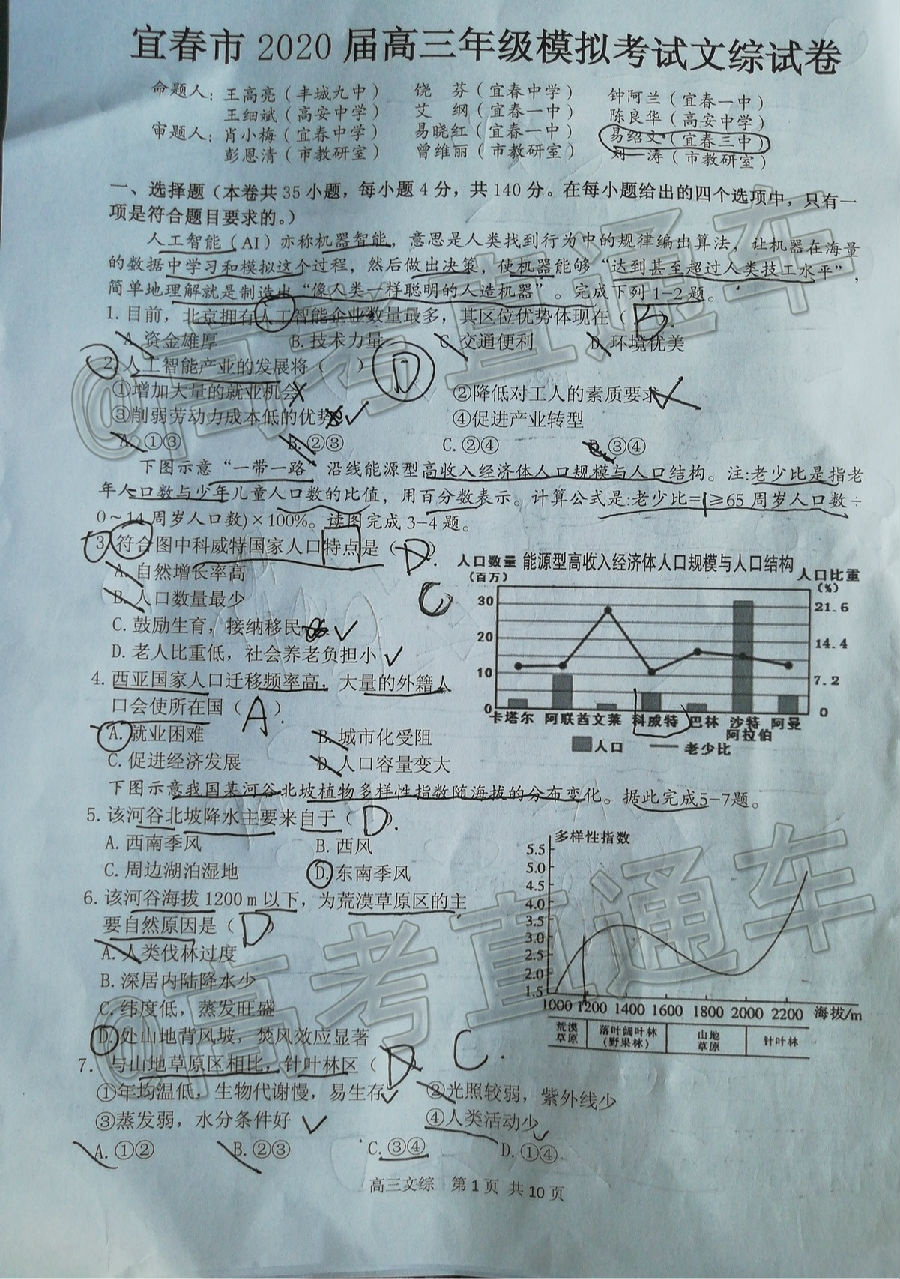 宜春市2020届高三年级模拟考试文综试卷
命题人：王高亮（丰城九中） 饶　芬（宜春中学） 钟阿兰（宜春一中）
王细斌（高安中学） 艾　纲（宜春一中） 陈良华（高安中学）
审题人：肖小梅（宜春中学） 易晓红（宜春一中） 易绍文（宜春三中）
彭恩清（市教研室） 曾维丽（市教研室） 刘　涛（市教研室）
一、选择题（本卷共35小题，每小题4分，共140分。在每小题给出的四个选项中，只有一
项是符合题目要求的。）
人工智能（AI）亦称机器智能，意思是人类找到行为中的规律编出算法，让机器在海量
的数据中学习和模拟这个过程，然后做出决策，使机器能够“达到甚至超过人类技工水平”，
简单地理解就是制造出“像人类一样聪明的人造机器”。完成下列1-2题。
1. 目前，北京拥有人工智能企业数量最多，其区位优势体现在（ B ）.
A. 资金雄厚 B. 技术力量 C. 交通便利 D. 环境优美
2. 人工智能产业的发展将（ ） D
①增加大量的就业机会 ②降低对工人的素质要求
③削弱劳动力成本低的优势 ④促进产业转型
A. ①③ B. ②③ C. ②④ D. ③④
下图示意“一带一路”沿线能源型高收入经济体人口规模与人口结构。注:老少比是指老
年人口数与少年儿童人口数的比值，用百分数表示。计算公式是:老少比=(≥65周岁人口数÷
0～14周岁人口数)×100%。读图完成3-4题。
3. 符合图中科威特国家人口特点是（ D ）
A. 自然增长率高
B. 人口数量最少
C
C. 鼓励生育，接纳移民
D. 老人比重低，社会养老负担小
4. 西亚国家人口迁移频率高，大量的外籍人
口会使所在国（ A ）
A. 就业困难 B. 城市化受阻
C. 促进经济发展 D. 人口容量变大
人口数量 能源型高收入经济体人口规模与人口结构
（百万） 人口比重
（%）
30 21.6
20 14.4
10 7.2
0 0
卡塔尔 阿联酋 文莱 科威特 巴林 沙特 阿曼
阿拉伯
人口 老少比
下图示意我国某河谷北坡植物多样性指数随海拔的分布变化。据此完成5-7题。
5. 该河谷北坡降水主要来自于（ D ）.
A. 西南季风 B. 西风
C. 周边湖泊湿地 D. 东南季风
6. 该河谷海拔1200m以下，为荒漠草原区的主
要自然原因是（ D ）
A. 人类伐林过度
B. 深居内陆降水少
C. 纬度低，蒸发旺盛
D. 处山地背风坡，焚风效应显著
多样性指数
5.5
5.0
4.5
4.0
3.5
3.0
2.5
2.0
1.5
1000 1200 1400 1600 1800 2000 2200 海拔/m
荒漠 落叶阔叶林 山地 针叶林
草原 （野果林） 草原
7. 与山地草原区相比，针叶林区（ D C.
①年均温低，生物代谢慢，易生存 ②光照较弱，紫外线少
③蒸发弱，水分条件好 ④人类活动少
A. ①② B. ②③ C. ③④ D. ①④
高三文综 第1页 共10页
@高考直通车
@高考直通车